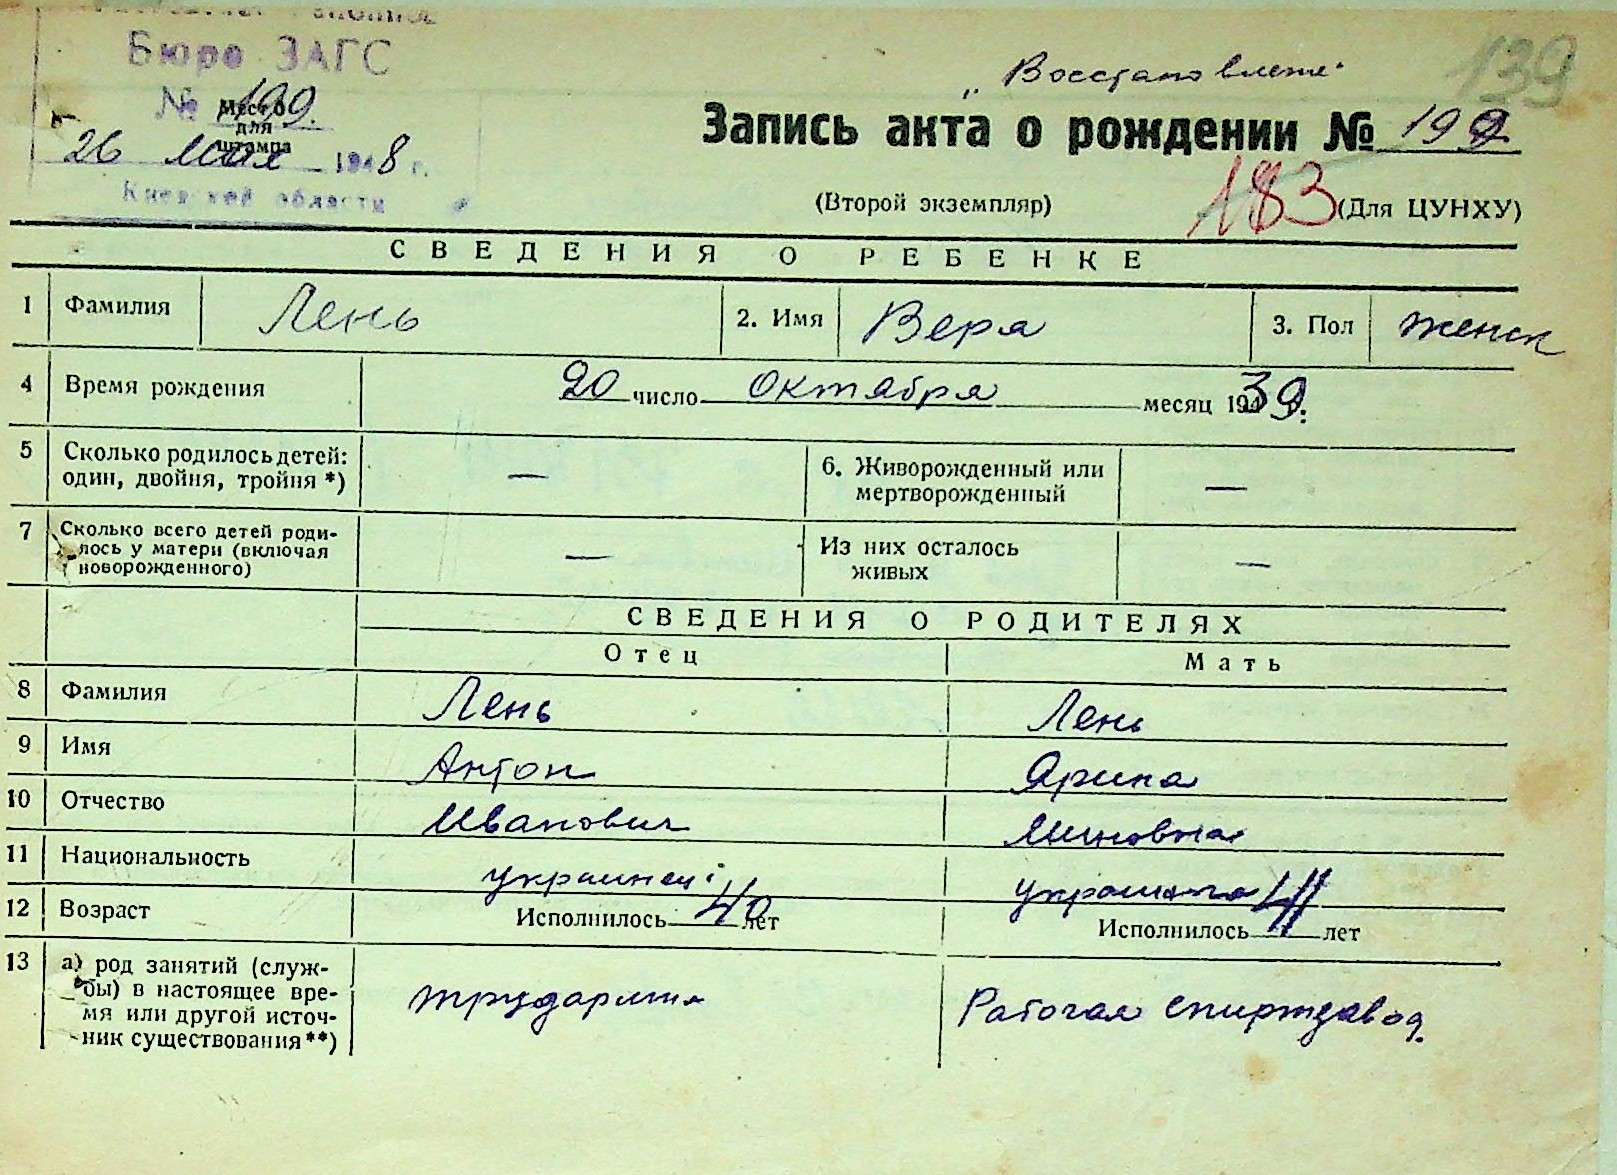 Бюро ЗАГС
139
„Восстановление“
№ 199.
Место
для
штампа
Запись акта о рождении № 199
26 мая 1948 г.
Киевской области
(Второй экземпляр)
183
(Для ЦУНХУ)
СВЕДЕНИЯ О РЕБЕНКЕ
1 Фамилия Лень 2. Имя Вера 3. Пол женск
4 Время рождения 20 число Октября месяц 1939.
5 Сколько родилось детей: один, двойня, тройня *) — 6. Живорожденный или мертворожденный —
7 Сколько всего детей роди-
лось у матери (включая
новорожденного) — Из них осталось живых —
СВЕДЕНИЯ О РОДИТЕЛЯХ
Отец Мать
8 Фамилия Лень Лень
9 Имя Антон Ярина
10 Отчество Иванович Миновна
11 Национальность украинец украинка
12 Возраст Исполнилось 40 лет Исполнилось 41 лет
13 а) род занятий (служ-
бы) в настоящее вре-
мя или другой источ-
ник существования**) трудармия Рабочая спиртзавод.